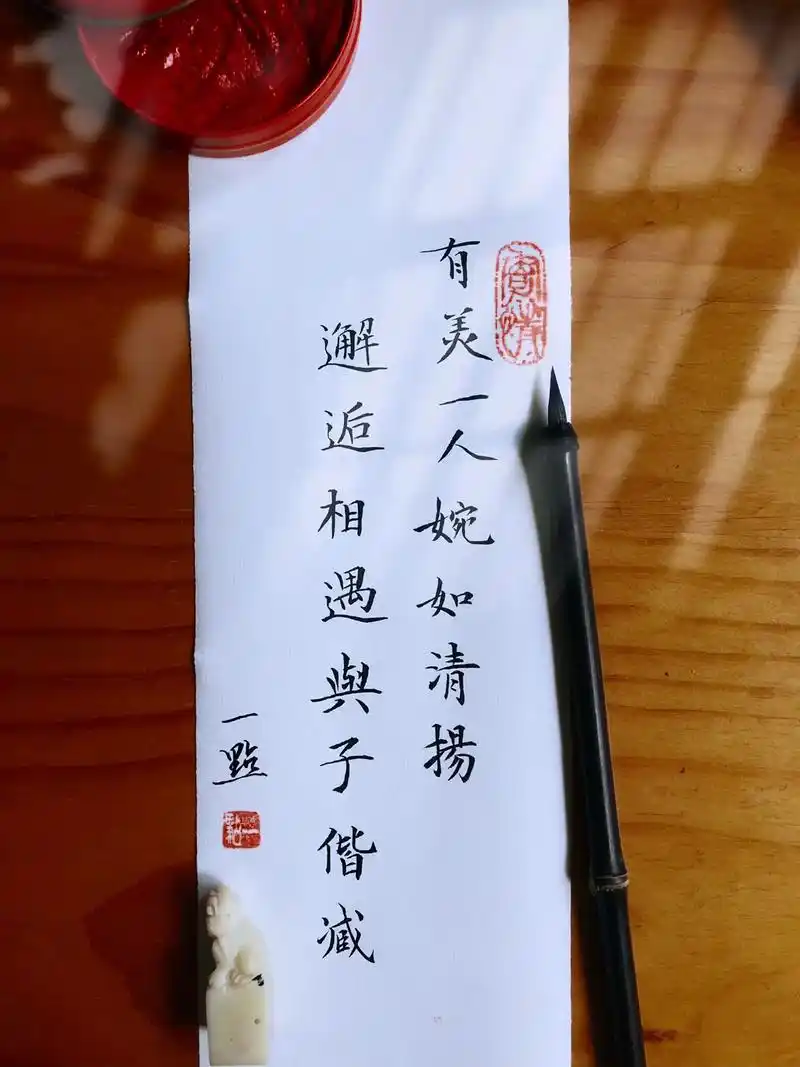 有美一人婉如清揚
邂逅相遇與子偕臧
一點